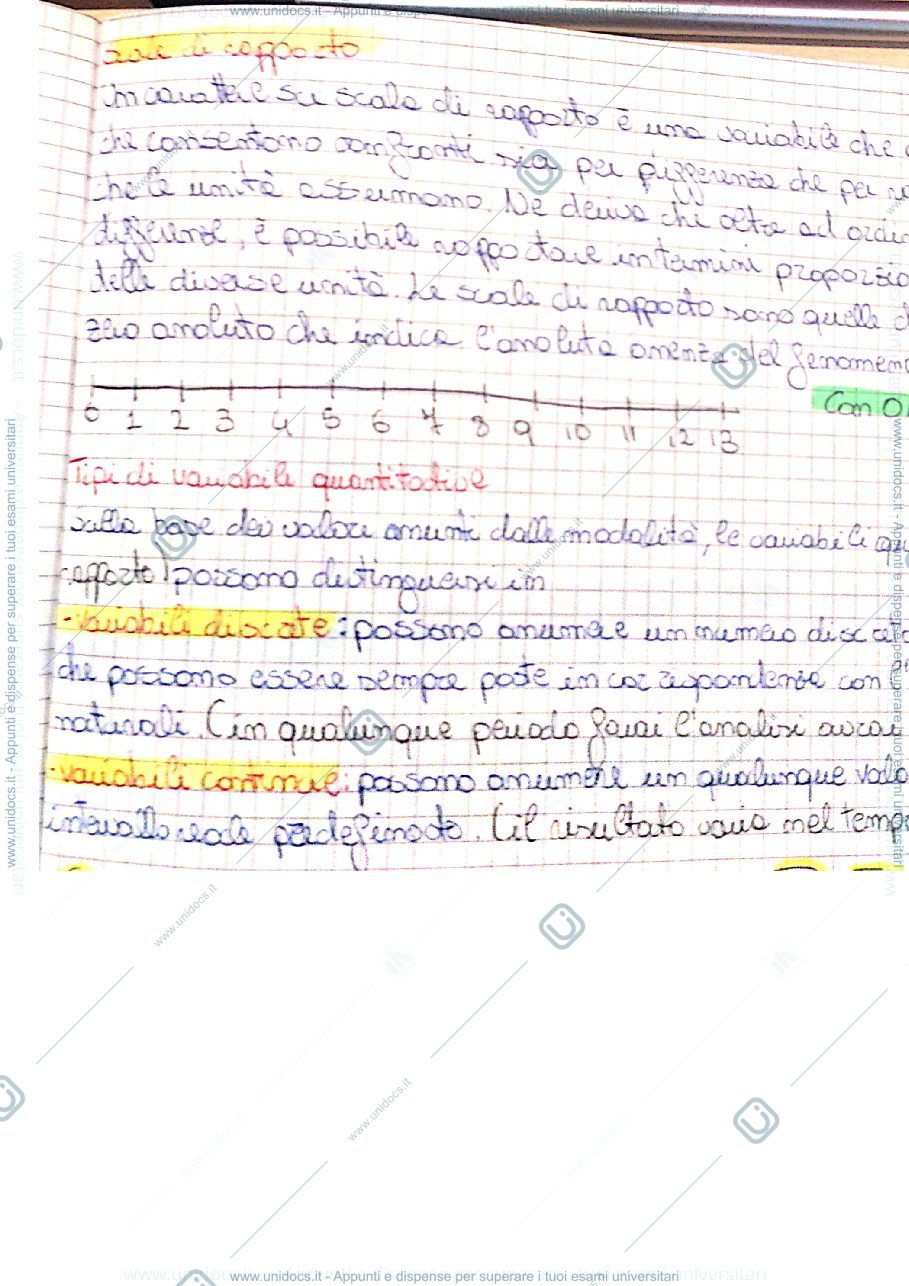 www.unidocs.it - Appunti e dispense per superare i tuoi esami universitari
scale di rapporto
Un carattere su scala di rapporto è una variabile che
che consentono confronti sia per differenza che per
che le unità assumono. Ne deriva che oltre ad
differenze, è possibile rapportare in termini
delle diverse unità. Le scale di rapporto sono quelle
zero assoluto che indica l'assoluta assenza del fenomeno
0 1 2 3 4 5 6 7 8 9 10 11 12 13
Con
Tipi di variabili quantitative
sulla base dei valori assunti dalle modalità, le variabili
rapporto) possono distinguersi in
-variabili discrete: possono assumere un numero
che possono essere sempre poste in corrispondenza con
naturali. (in qualunque periodo farai l'analisi avrai
-variabili continue: possono assumere un qualunque
intervallo reale predefinito. (il risultato varia nel
www.unidocs.it - Appunti e dispense per superare i tuoi esami universitari
www.unidocs.it - Appunti e dispense per superare i tuoi esami universitari
www.unidocs.it
www.unidocs.it
www.unidocs.it - Appunti e dispense per superare i tuoi esami universitari